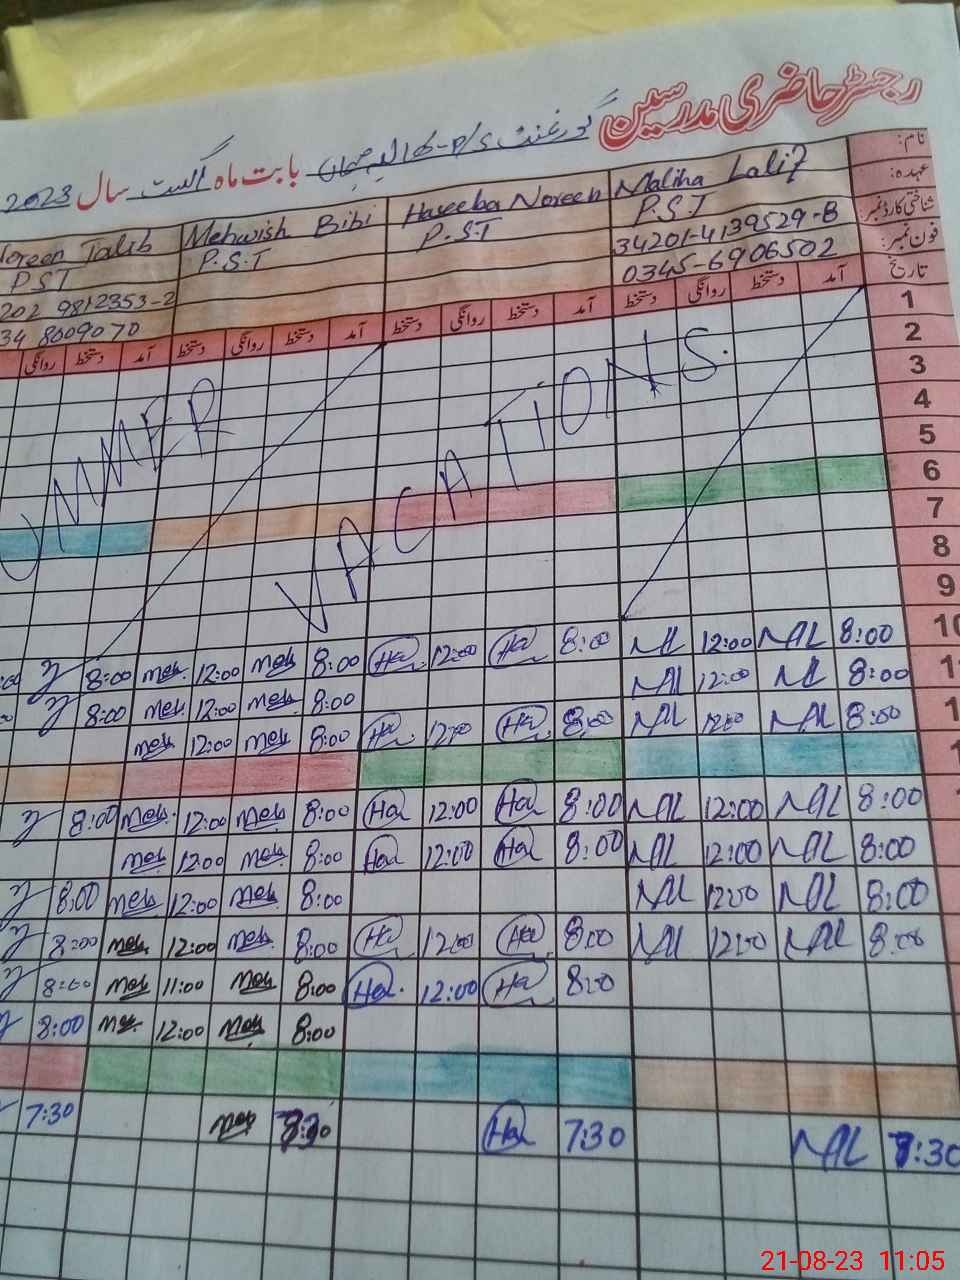 رجسٹر حاضری مدرسین
گورنمنٹ P/S بابت ماہ اگست سال 2023
نام:
عہدہ:
شناختی کارڈ نمبر:
فون نمبر:
تاریخ
Noreen Talib Mehwish Bibi Haseeba Noreen Maliha Latif
PST P.S.T P.S.T P.S.T
202 9812353-2 34201-4139529-8
34 8009070 0345-6906502
آمد دستخط روانگی دستخط آمد دستخط روانگی دستخط آمد دستخط روانگی دستخط آمد دستخط روانگی
1
2
3
4
5
6
7
8
9
UMMER VACATIONS.
8:00 Meh 12:00 Meh 8:00 Ha 12:00 Ha 8:00 ML 12:00 MAL 8:00 10
8:00 Meh 12:00 Meh 8:00 MAL 12:00 ML 8:00 1
Meh 12:00 Meh 8:00 Ha 12:00 Ha 8:00 MAL 12:00 MAL 8:00 1
1
8:00 Meh 12:00 Meh 8:00 Ha 12:00 Ha 8:00 MAL 12:00 MAL 8:00
Meh 12:00 Meh 8:00 Ha 12:00 Ha 8:00 MAL 12:00 MAL 8:00
8:00 Meh 12:00 Meh 8:00 MAL 12:00 MAL 8:00
8:00 Meh 12:00 Meh 8:00 Ha 12:00 Ha 8:00 MAL 12:00 MAL 8:00
8:00 Meh 11:00 Meh 8:00 Ha 12:00 Ha 8:00
8:00 Meh 12:00 Meh 8:00
7:30 Meh Ha 7:30 MAL 7:30
21-08-23 11:05